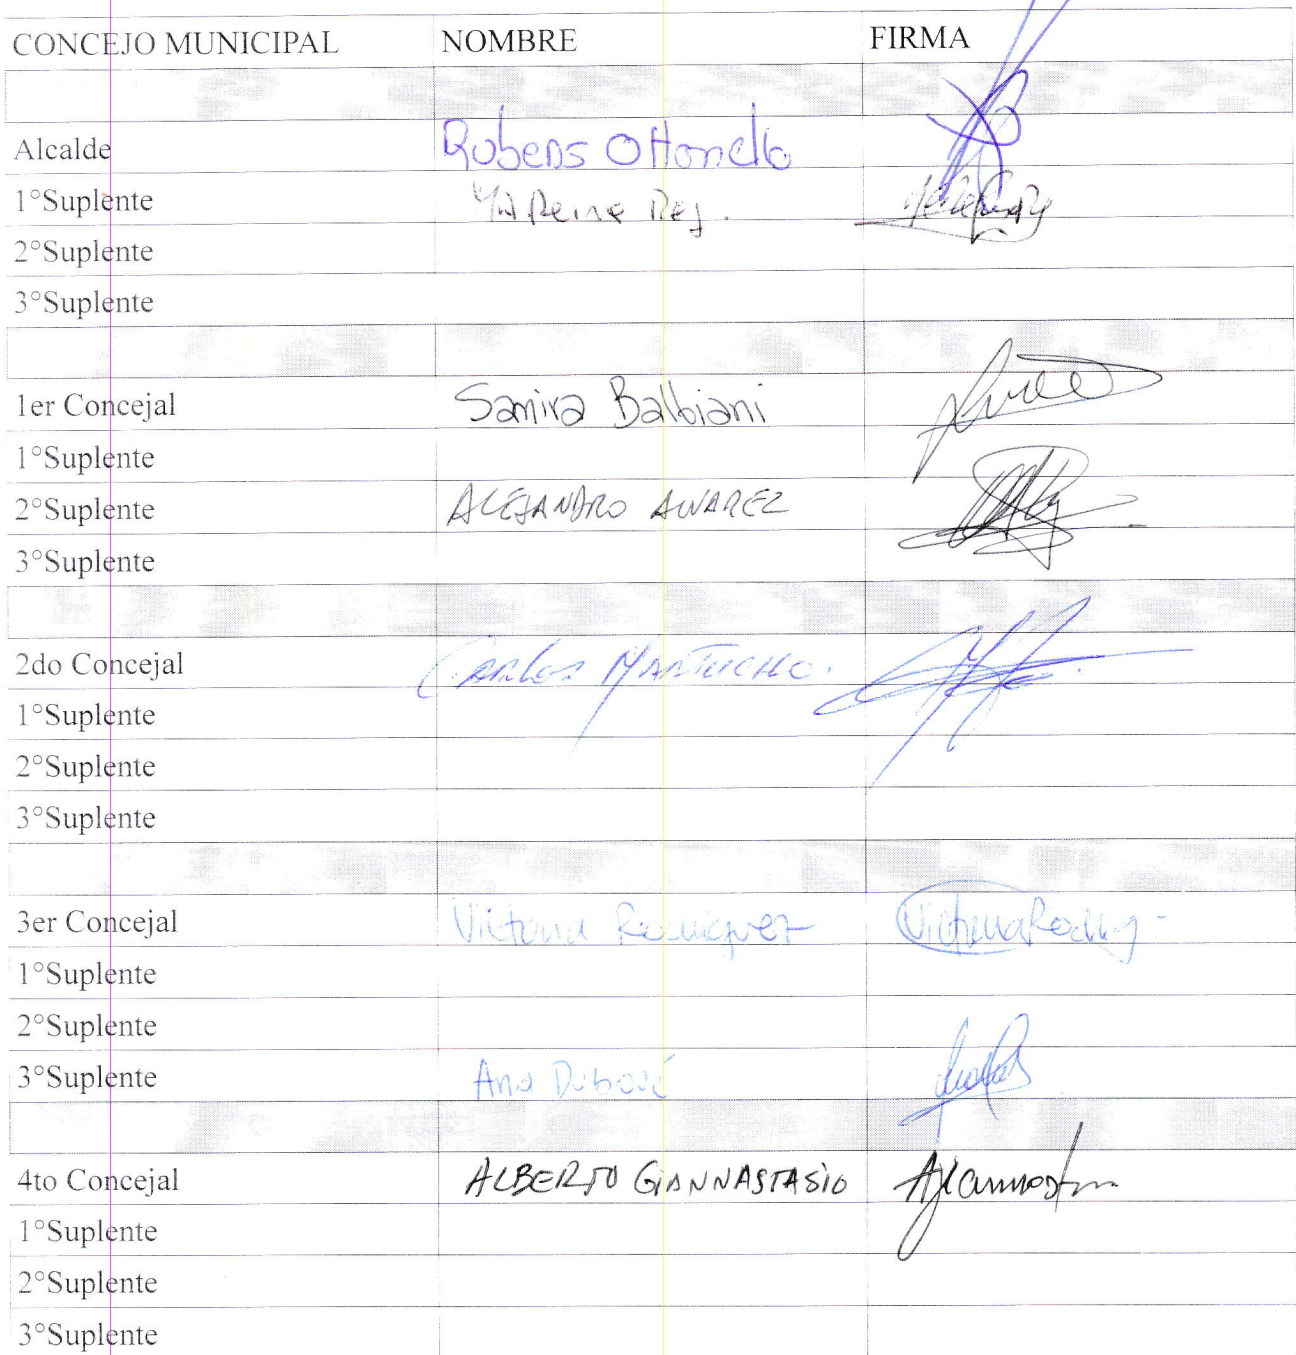 CONCEJO MUNICIPAL NOMBRE FIRMA
Alcalde Rubens Ottonello
1°Suplente
2°Suplente
3°Suplente
1er Concejal Samira Balbiani
1°Suplente
2°Suplente ALEJANDRO ALVAREZ
3°Suplente
2do Concejal Carlos
1°Suplente
2°Suplente
3°Suplente
3er Concejal Victoria Rodriguez
1°Suplente
2°Suplente
3°Suplente Ana
4to Concejal ALBERTO GIANNASTASIO
1°Suplente
2°Suplente
3°Suplente